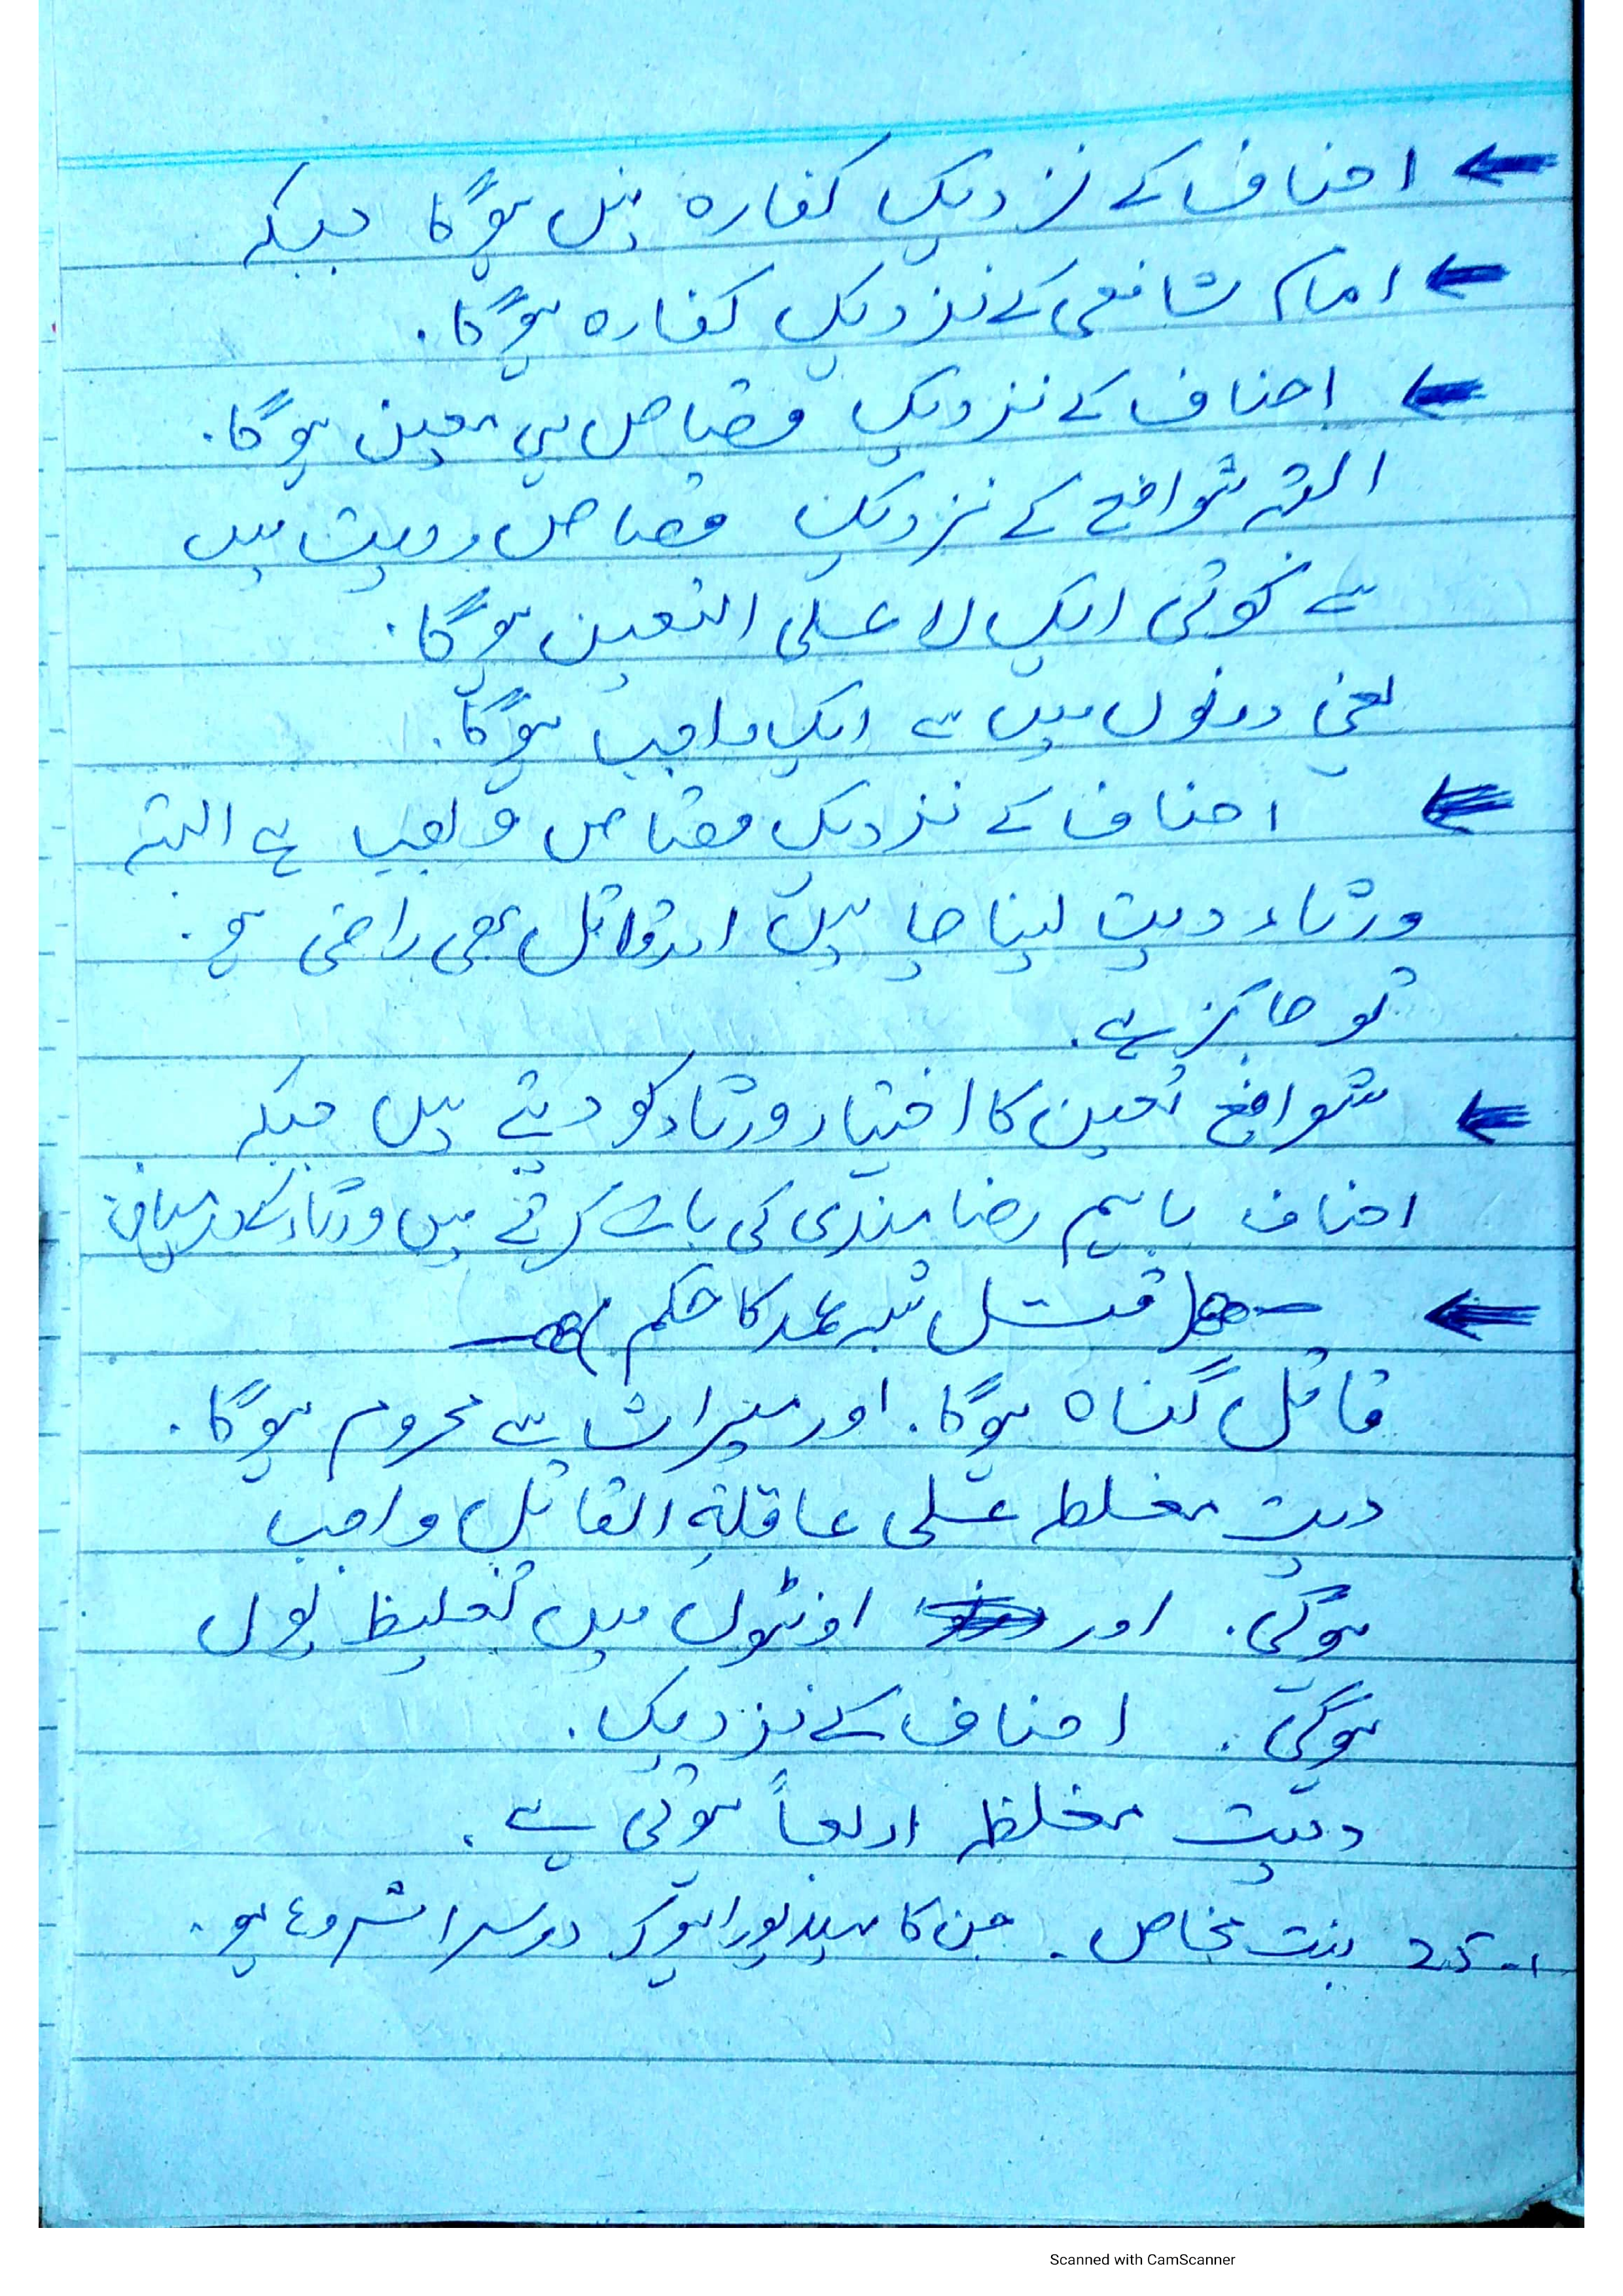 ← احناف کے نزدیک کفارہ نہیں ہوگا جبکہ
← امام شافعی کے نزدیک کفارہ ہوگا۔
← احناف کے نزدیک قصاص ہی معین ہوگا۔
البتہ شوافع کے نزدیک قصاص ودیت میں
سے کوئی ایک لا علی التعین ہوگا۔
یعنی دونوں میں سے ایک واجب ہوگا۔
← احناف کے نزدیک قصاص ہے البتہ
ورثاء دیت لینا چاہیں اور قاتل بھی راضی ہو۔
تو جائز ہے۔
← شوافع تعین کا اختیار ورثاء کو دیتے ہیں جبکہ
احناف باہم رضا مندی کی بات کرتے ہیں ورثاء کے درمیان
← (قتل شبہ عمد کا حکم)
قاتل گناہ ہوگا۔ اور میراث سے محروم ہوگا۔
دیت مغلطہ علی عاقلۃ القاتل واجب
ہوگی۔ اور اونٹوں میں تغلیظ یوں
ہوگی۔ احناف کے نزدیک۔
دیت مغلظہ اربعاً ہوتی ہے۔
1- 25 بنت مخاض۔ جن کا پورا ہوکر دوسرا شروع ہو۔
Scanned with CamScanner